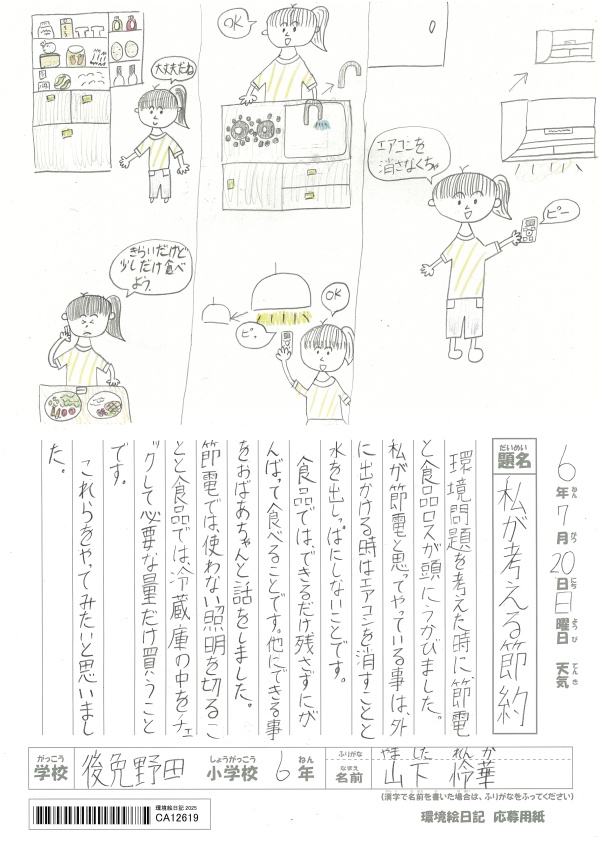 大丈夫だね
OK
エアコンを
消さなくちゃ
ピー
きらいだけど
少しだけ食べ
よう。
ピッ
OK
6年7月20日日曜日 天気
ねん がつ にち ようび てんき
だいめい
題名
私が考える節約
環境問題を考えた時に節電
と食品ロスが頭にうかびました。
私が節電と思ってやっている事は、外
に出かける時はエアコンを消すことと
水を出しっぱにしないことです。
食品では、できるだけ残さずにが
んばって食べることです。他にできる事
をおばあちゃんと話をしました。
節電では、使わない照明を切るこ
とと食品では冷蔵庫の中をチェ
ックして必要な量だけ買うこと
です。
これらをやってみたいと思いまし
た。
がっこう しょうがっこう ねん
学校 後免野田 小学校 6年
ふりがな やました れんか
なまえ
名前 山下 怜華
(漢字で名前を書いた場合は、ふりがなをふってください)
環境絵日記 2025
CA12619
環境絵日記 応募用紙